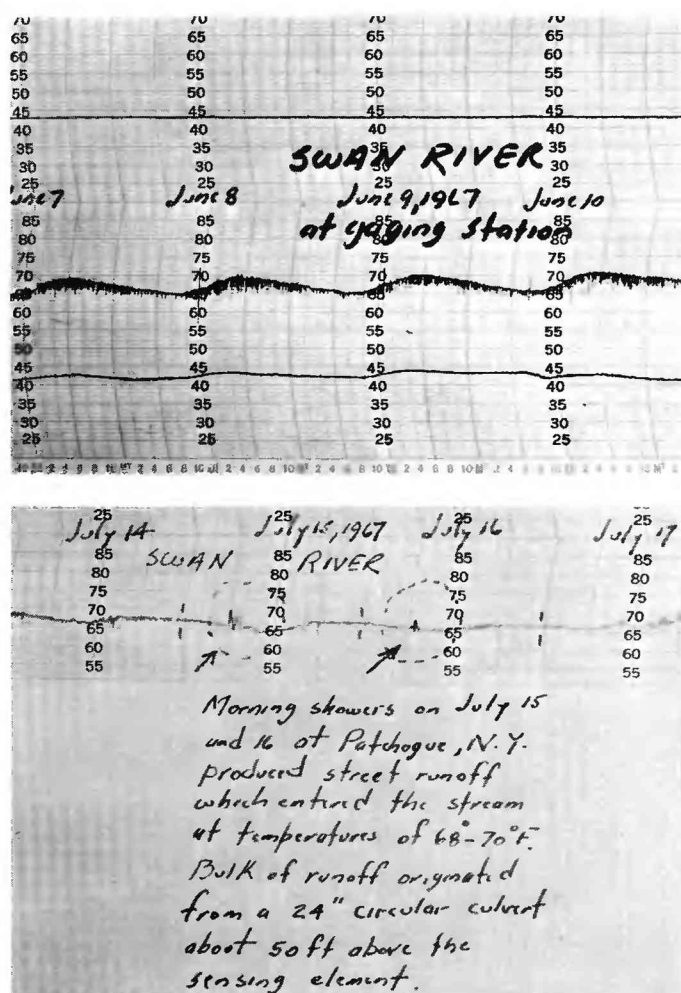 70 70 70 70
65 65 65 65
60 60 60 60
55 55 55 55
50 50 50 50
45 45 45 45
40 40 40 40
35 35 35 35
SWAN RIVER
30 30 30 30
25 25 25 25
June 7 June 8 June 9, 1967 June 10
85 85 85 85
at gaging station
80 80 80 80
75 75 75 75
70 70 70 70
65 65 65 65
60 60 60 60
55 55 55 55
50 50 50 50
45 45 45 45
40 40 40 40
35 35 35 35
30 30 30 30
25 25 25 25
25 25 25 25
July 14 July 15, 1967 July 16 July 17
85 85 85 85
SWAN RIVER
80 80 80 80
75 75 75 75
70 70 70 70
65 65 65 65
60 60 60 60
55 55 55 55
Morning showers on July 15
and 16 at Patchogue, N.Y.
produced street runoff
which entered the stream
at temperatures of 68°-70°F.
Bulk of runoff originated
from a 24" circular culvert
about 50 ft above the
sensing element.